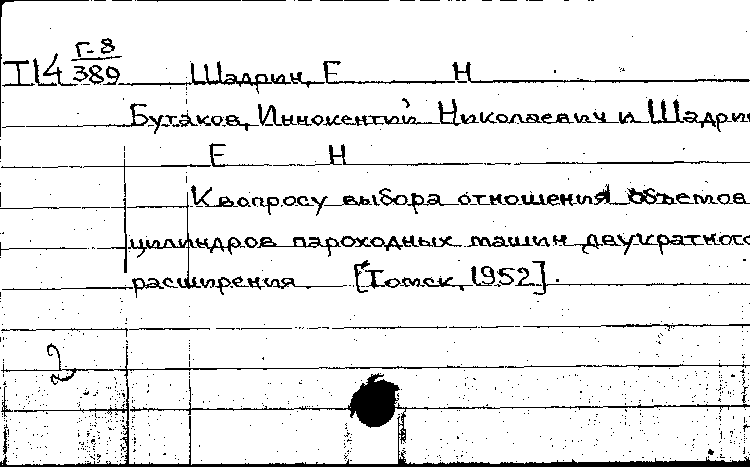 Г-8
Т14 389 Шадрин, Е Н
Бутаков, Иннокентий Николаевич и Шадрин
Е Н
К вопросу выбора отношения объемов
цилиндров пароходных машин двукратного
расширения. [Томск, 1952].
2